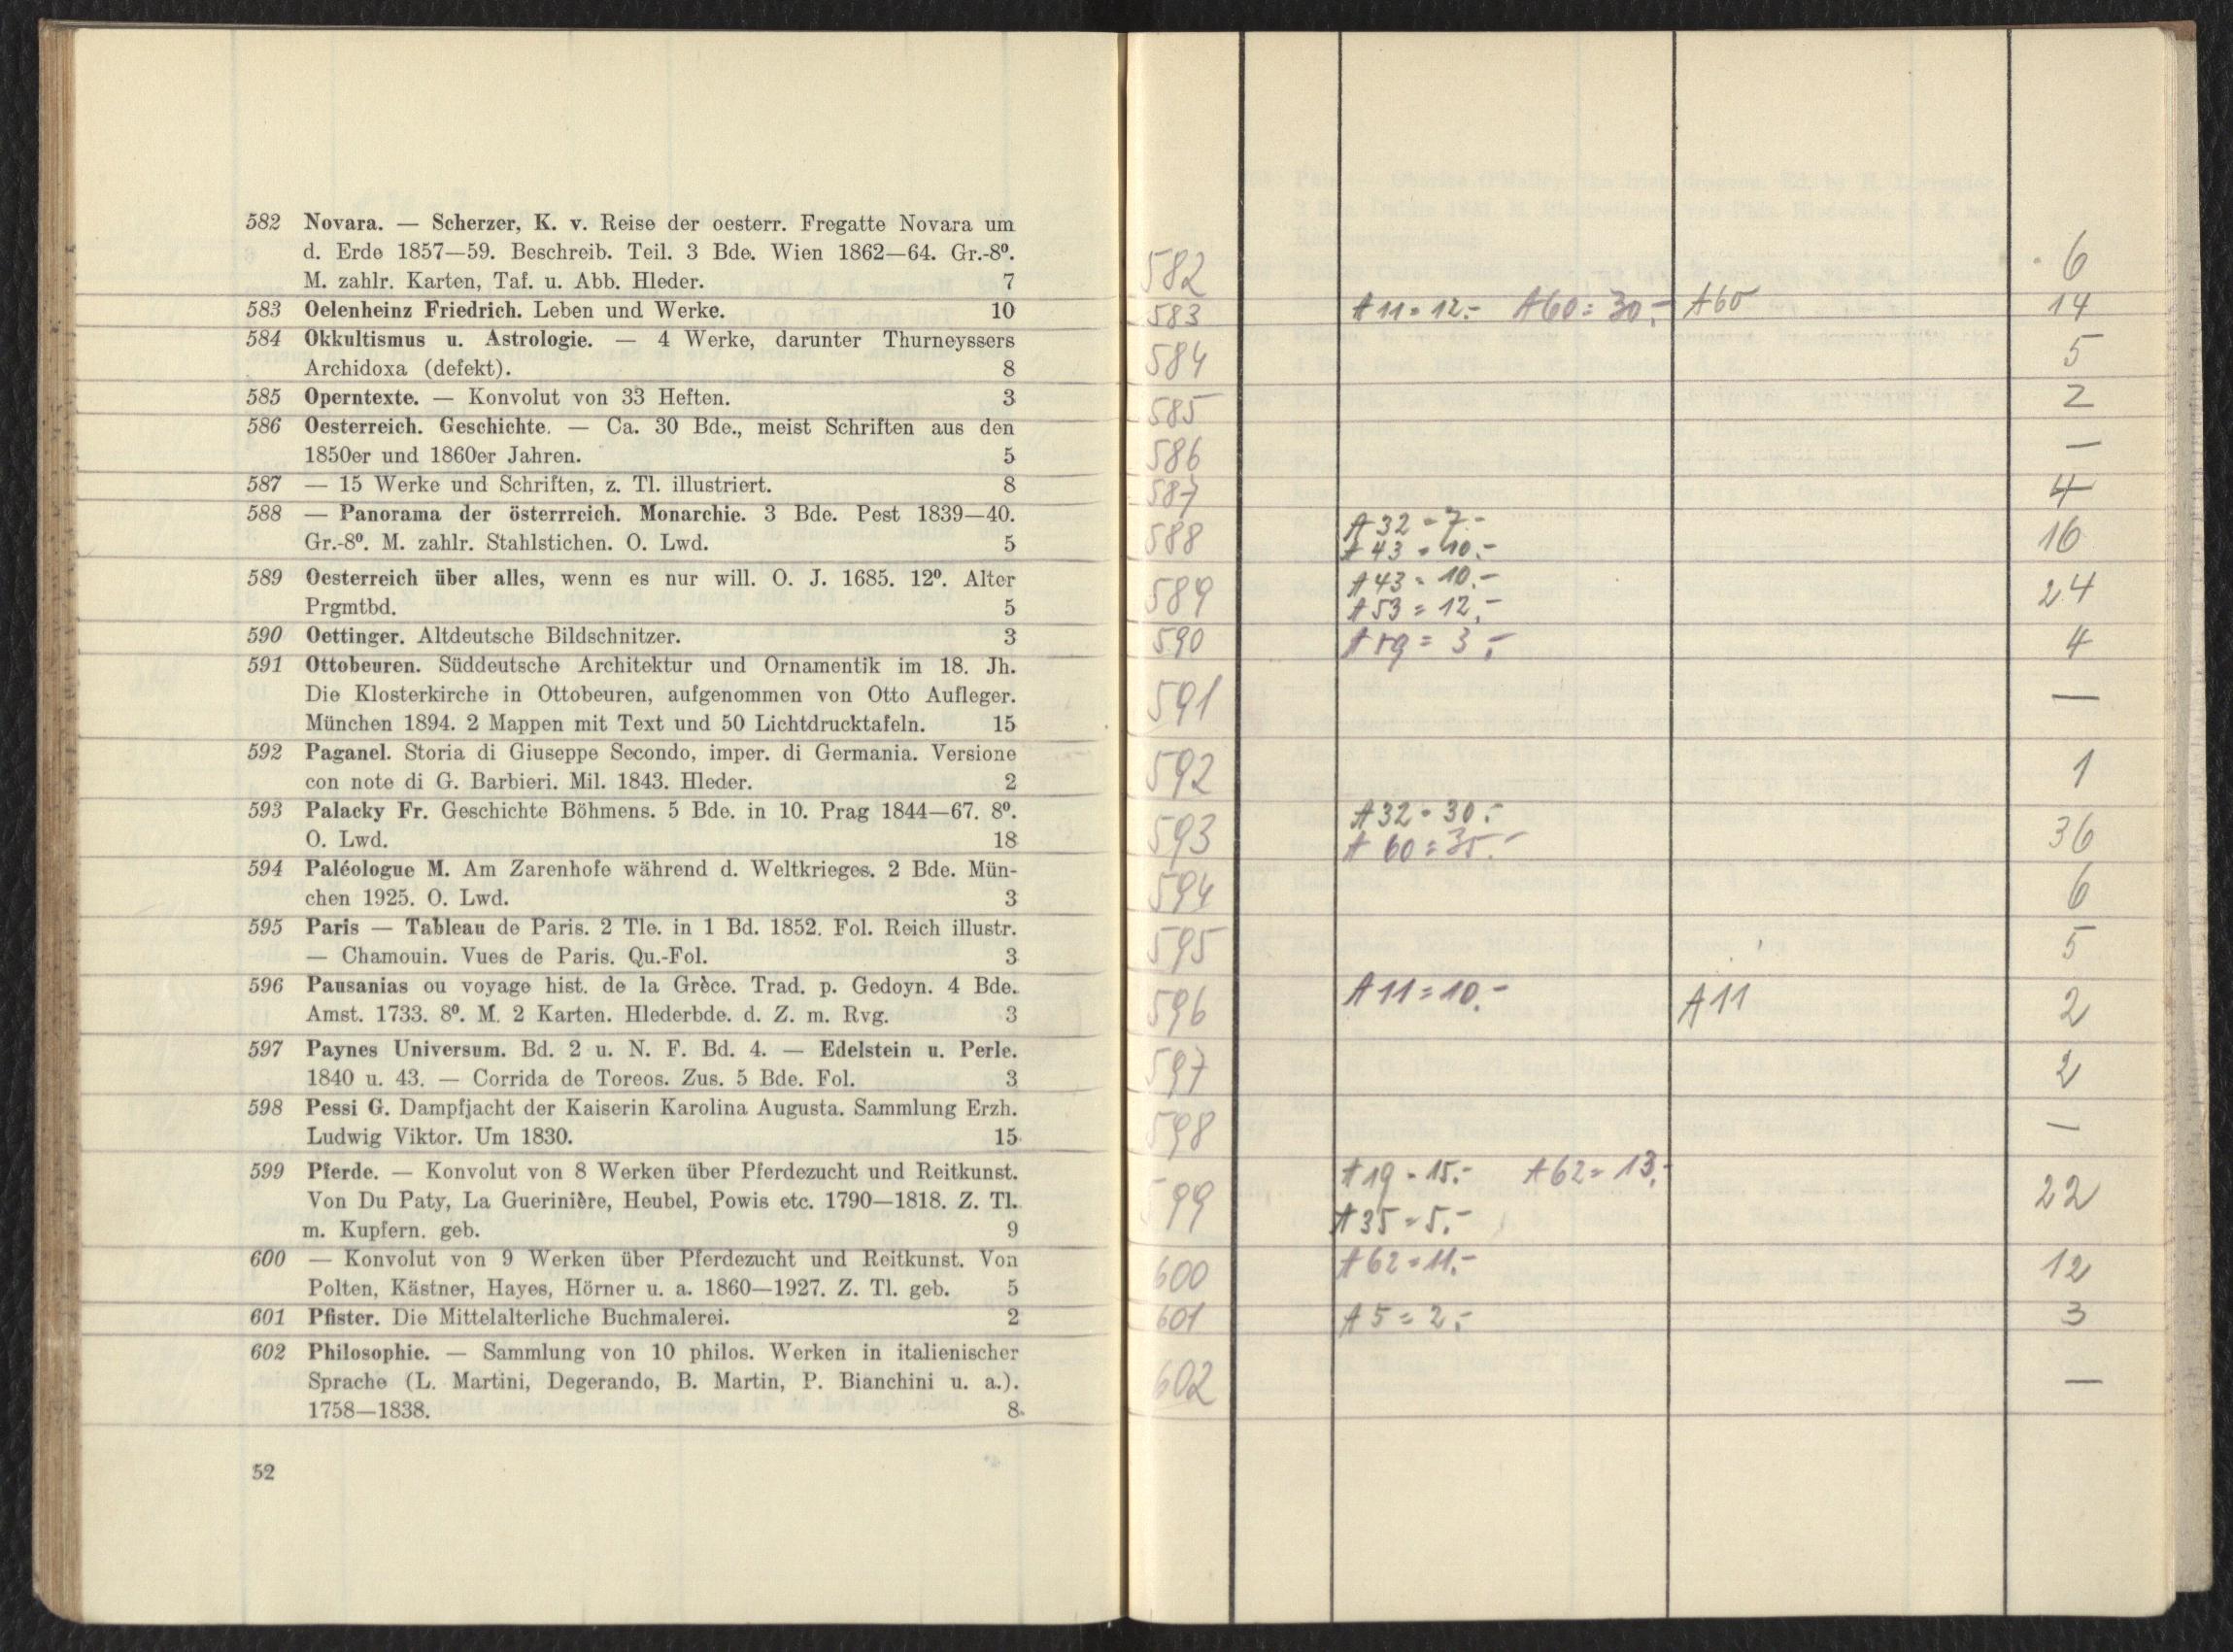 582 Novara. — Scherzer, K. v. Reise der oesterr. Fregatte Novara um
d. Erde 1857—59. Beschreib. Teil. 3 Bde. Wien 1862—64. Gr.-8⁰.
M. zahlr. Karten, Taf. u. Abb. Hleder. 7
583 Oelenheinz Friedrich. Leben und Werke. 10
584 Okkultismus u. Astrologie. — 4 Werke, darunter Thurneyssers
Archidoxa (defekt). 8
585 Operntexte. — Konvolut von 33 Heften. 3
586 Oesterreich. Geschichte. — Ca. 30 Bde., meist Schriften aus den
1850er und 1860er Jahren. 5
587 — 15 Werke und Schriften, z. Tl. illustriert. 8
588 — Panorama der österrreich. Monarchie. 3 Bde. Pest 1839—40.
Gr.-8⁰. M. zahlr. Stahlstichen. O. Lwd. 5
589 Oesterreich über alles, wenn es nur will. O. J. 1685. 12⁰. Alter
Prgmtbd. 5
590 Oettinger. Altdeutsche Bildschnitzer. 3
591 Ottobeuren. Süddeutsche Architektur und Ornamentik im 18. Jh.
Die Klosterkirche in Ottobeuren, aufgenommen von Otto Aufleger.
München 1894. 2 Mappen mit Text und 50 Lichtdrucktafeln. 15
592 Paganel. Storia di Giuseppe Secondo, imper. di Germania. Versione
con note di G. Barbieri. Mil. 1843. Hleder. 2
593 Palacky Fr. Geschichte Böhmens. 5 Bde. in 10. Prag 1844—67. 8⁰.
O. Lwd. 18
594 Paléologue M. Am Zarenhofe während d. Weltkrieges. 2 Bde. Mün-
chen 1925. O. Lwd. 3
595 Paris — Tableau de Paris. 2 Tle. in 1 Bd. 1852. Fol. Reich illustr.
— Chamouin. Vues de Paris. Qu.-Fol. 3
596 Pausanias ou voyage hist. de la Grèce. Trad. p. Gedoyn. 4 Bde.
Amst. 1733. 8⁰. M. 2 Karten. Hlederbde. d. Z. m. Rvg. 3
597 Paynes Universum. Bd. 2 u. N. F. Bd. 4. — Edelstein u. Perle.
1840 u. 43. — Corrida de Toreos. Zus. 5 Bde. Fol. 3
598 Pessi G. Dampfjacht der Kaiserin Karolina Augusta. Sammlung Erzh.
Ludwig Viktor. Um 1830. 15
599 Pferde. — Konvolut von 8 Werken über Pferdezucht und Reitkunst.
Von Du Paty, La Guerinière, Heubel, Powis etc. 1790—1818. Z. Tl.
m. Kupfern. geb. 9
600 — Konvolut von 9 Werken über Pferdezucht und Reitkunst. Von
Polten, Kästner, Hayes, Hörner u. a. 1860—1927. Z. Tl. geb. 5
601 Pfister. Die Mittelalterliche Buchmalerei. 2
602 Philosophie. — Sammlung von 10 philos. Werken in italienischer
Sprache (L. Martini, Degerando, B. Martin, P. Bianchini u. a.).
1758—1838. 8
52
582 6
583 A 11 = 12.- A 60 = 30.- A 60 14
584 5
585 2
586 —
587 4
588 A 32 = 7.- 16
A 43 = 10.-
589 A 43 = 10.- 24
A 53 = 12.-
590 = 3.- 4
591 —
592 1
593 A 32 = 30.- 36
A 60 = 35.-
594 6
595 5
596 A 11 = 10.- A 11 2
597 2
598 —
599 A 19 = 15.- A 62 = 13.- 22
A 35 = 5.-
600 A 62 = 11.- 12
601 A 5 = 2.- 3
602 —